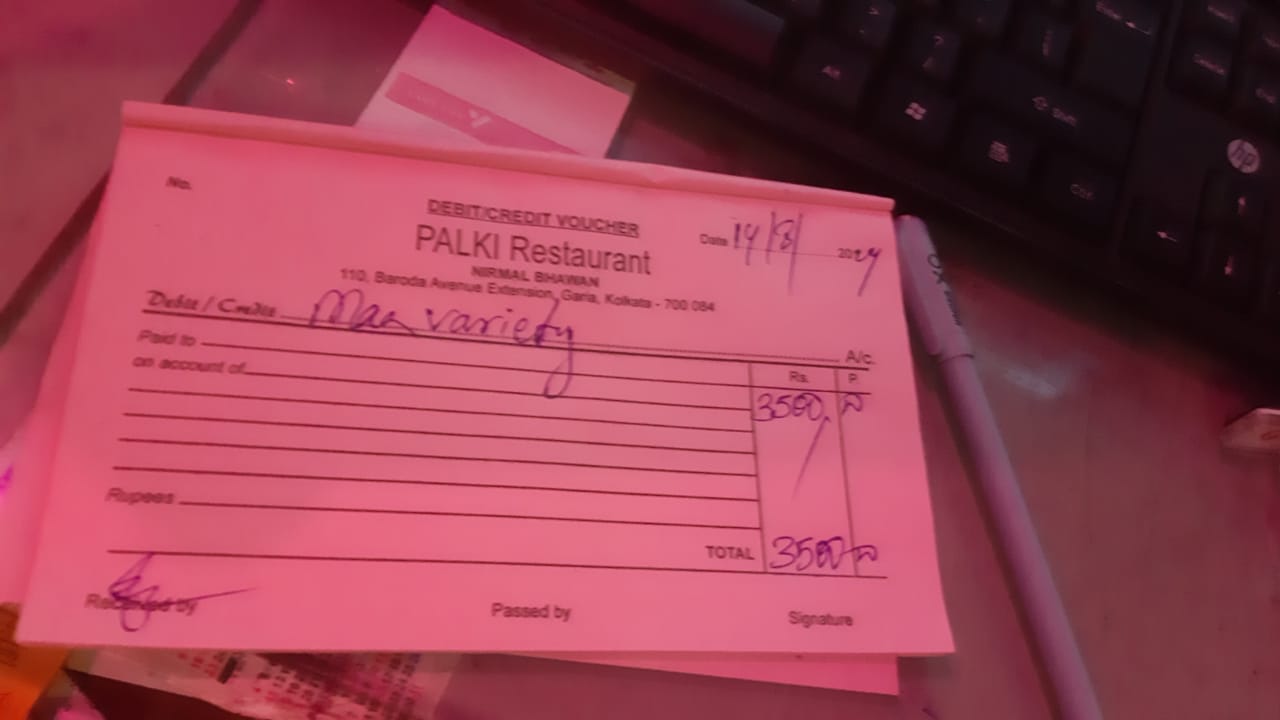 No.
DEBIT/CREDIT VOUCHER
PALKI Restaurant
Date 14/8/ 2024
NIRMAL BHAWAN
110, Baroda Avenue Extension, Garia, Kolkata - 700 084
Debit / Credit Maa variety A/c.
Paid to
on account of
Rs. P.
3500
Rupees
TOTAL 3500
Received by Passed by Signature
Alt
?
Enter
Shift
Ctrl
hp